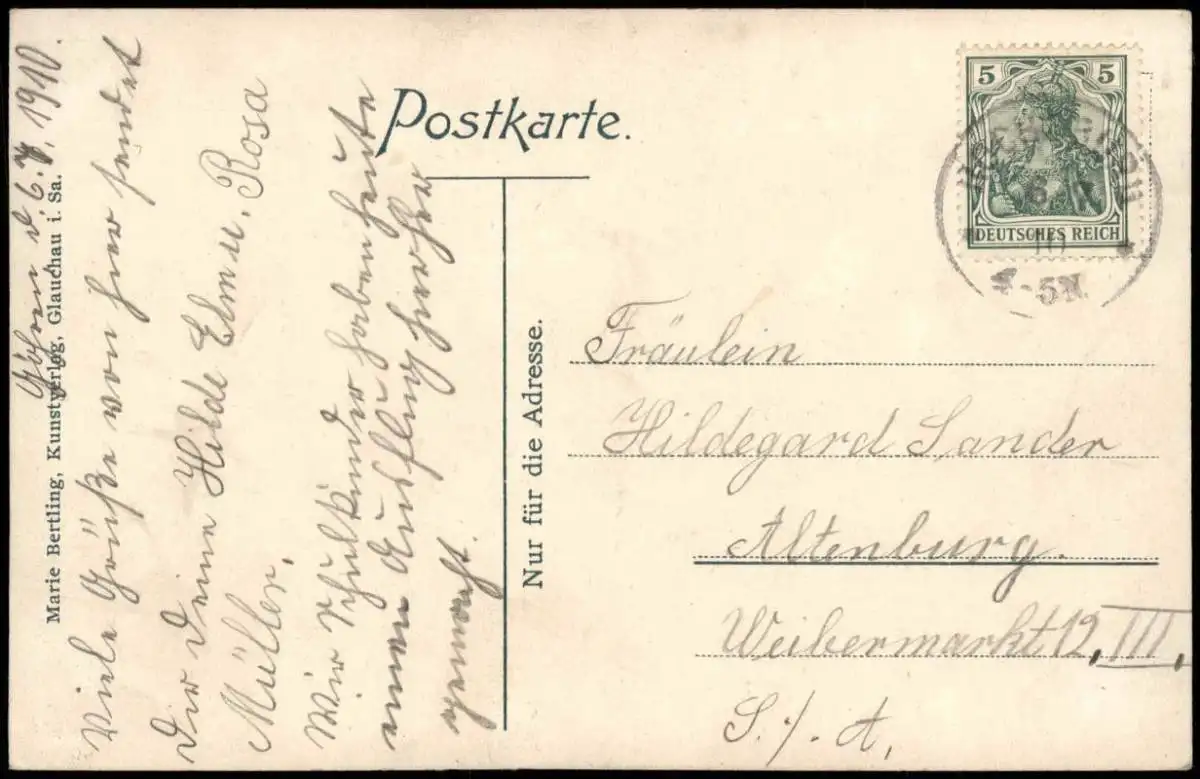 Postkarte.
5 5
DEUTSCHES REICH
10
-5N.
Nur für die Adresse.
Fräulein
Hildegard Sander
Altenburg.
Weibermarkt 12, III,
S./A,
Marie Bertling, Kunstverlag, Glauchau i. Sa.
Göhren d. 6. 7. 1910.
Viele Grüße von hier sendet
Dir Deine Hilde Elma u. Rosa
Müller.
Wir Schulkinder haben heute
einen Ausflug hierher
gemacht.